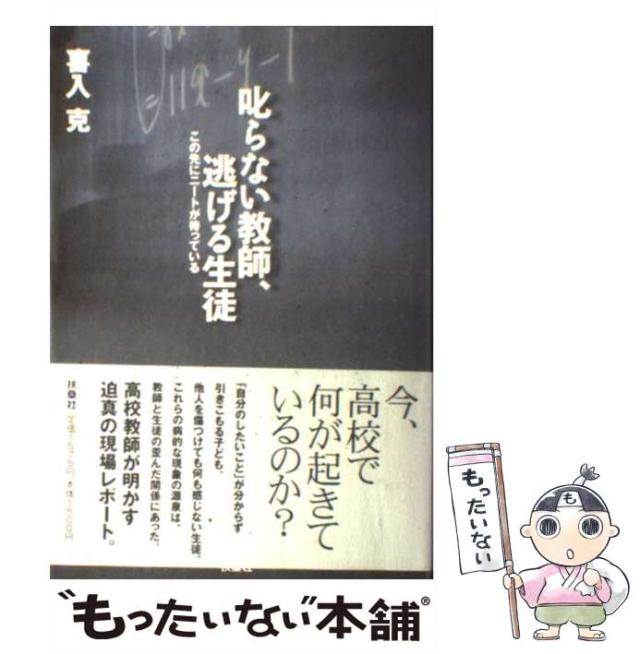 喜入 克
叱らない教師、
逃げる生徒
この先にニートが待っている
今、
高校で
何が起きて
いるのか?
「自分のしたいこと」が分からず
引きこもる子ども、
他人を傷つけても何も感じない生徒。
これらの病的な現象の源泉は、
教師と生徒の歪んだ関係にあった。
高校教師が明かす
迫真の現場レポート。
扶桑社
"もったいない"本舗®
もったいない
も